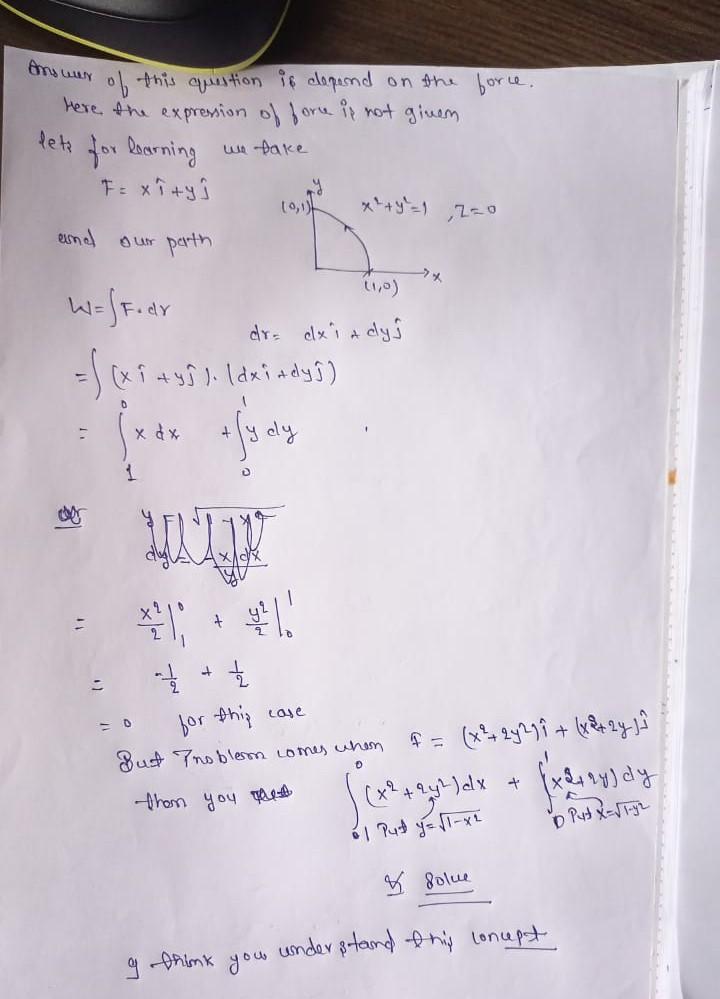 Answer of this question is depend on the force.
Here the expression of force is not given
lets for learning we take
F = x î + y ĵ
y
(0,1)
x²+y²=1 , z=0
and our path
x
(1,0)
W = ∫F.dr
dr = dx î + dy ĵ
= ∫(x î + y ĵ). (dx î + dy ĵ)
= ∫₁⁰ x dx + ∫₀¹ y dy
= x²/2 |₁⁰ + y²/2 |₀¹
= -1/2 + 1/2
= 0 for this case
But Problem comes when F = (x²+2y²) î + (x²+2y) ĵ
then you ∫₁⁰ (x²+2y²) dx + ∫₀¹ (x²+2y) dy
Put y=√1-x² Put x=√1-y²
& Solve
I think you understand this concept